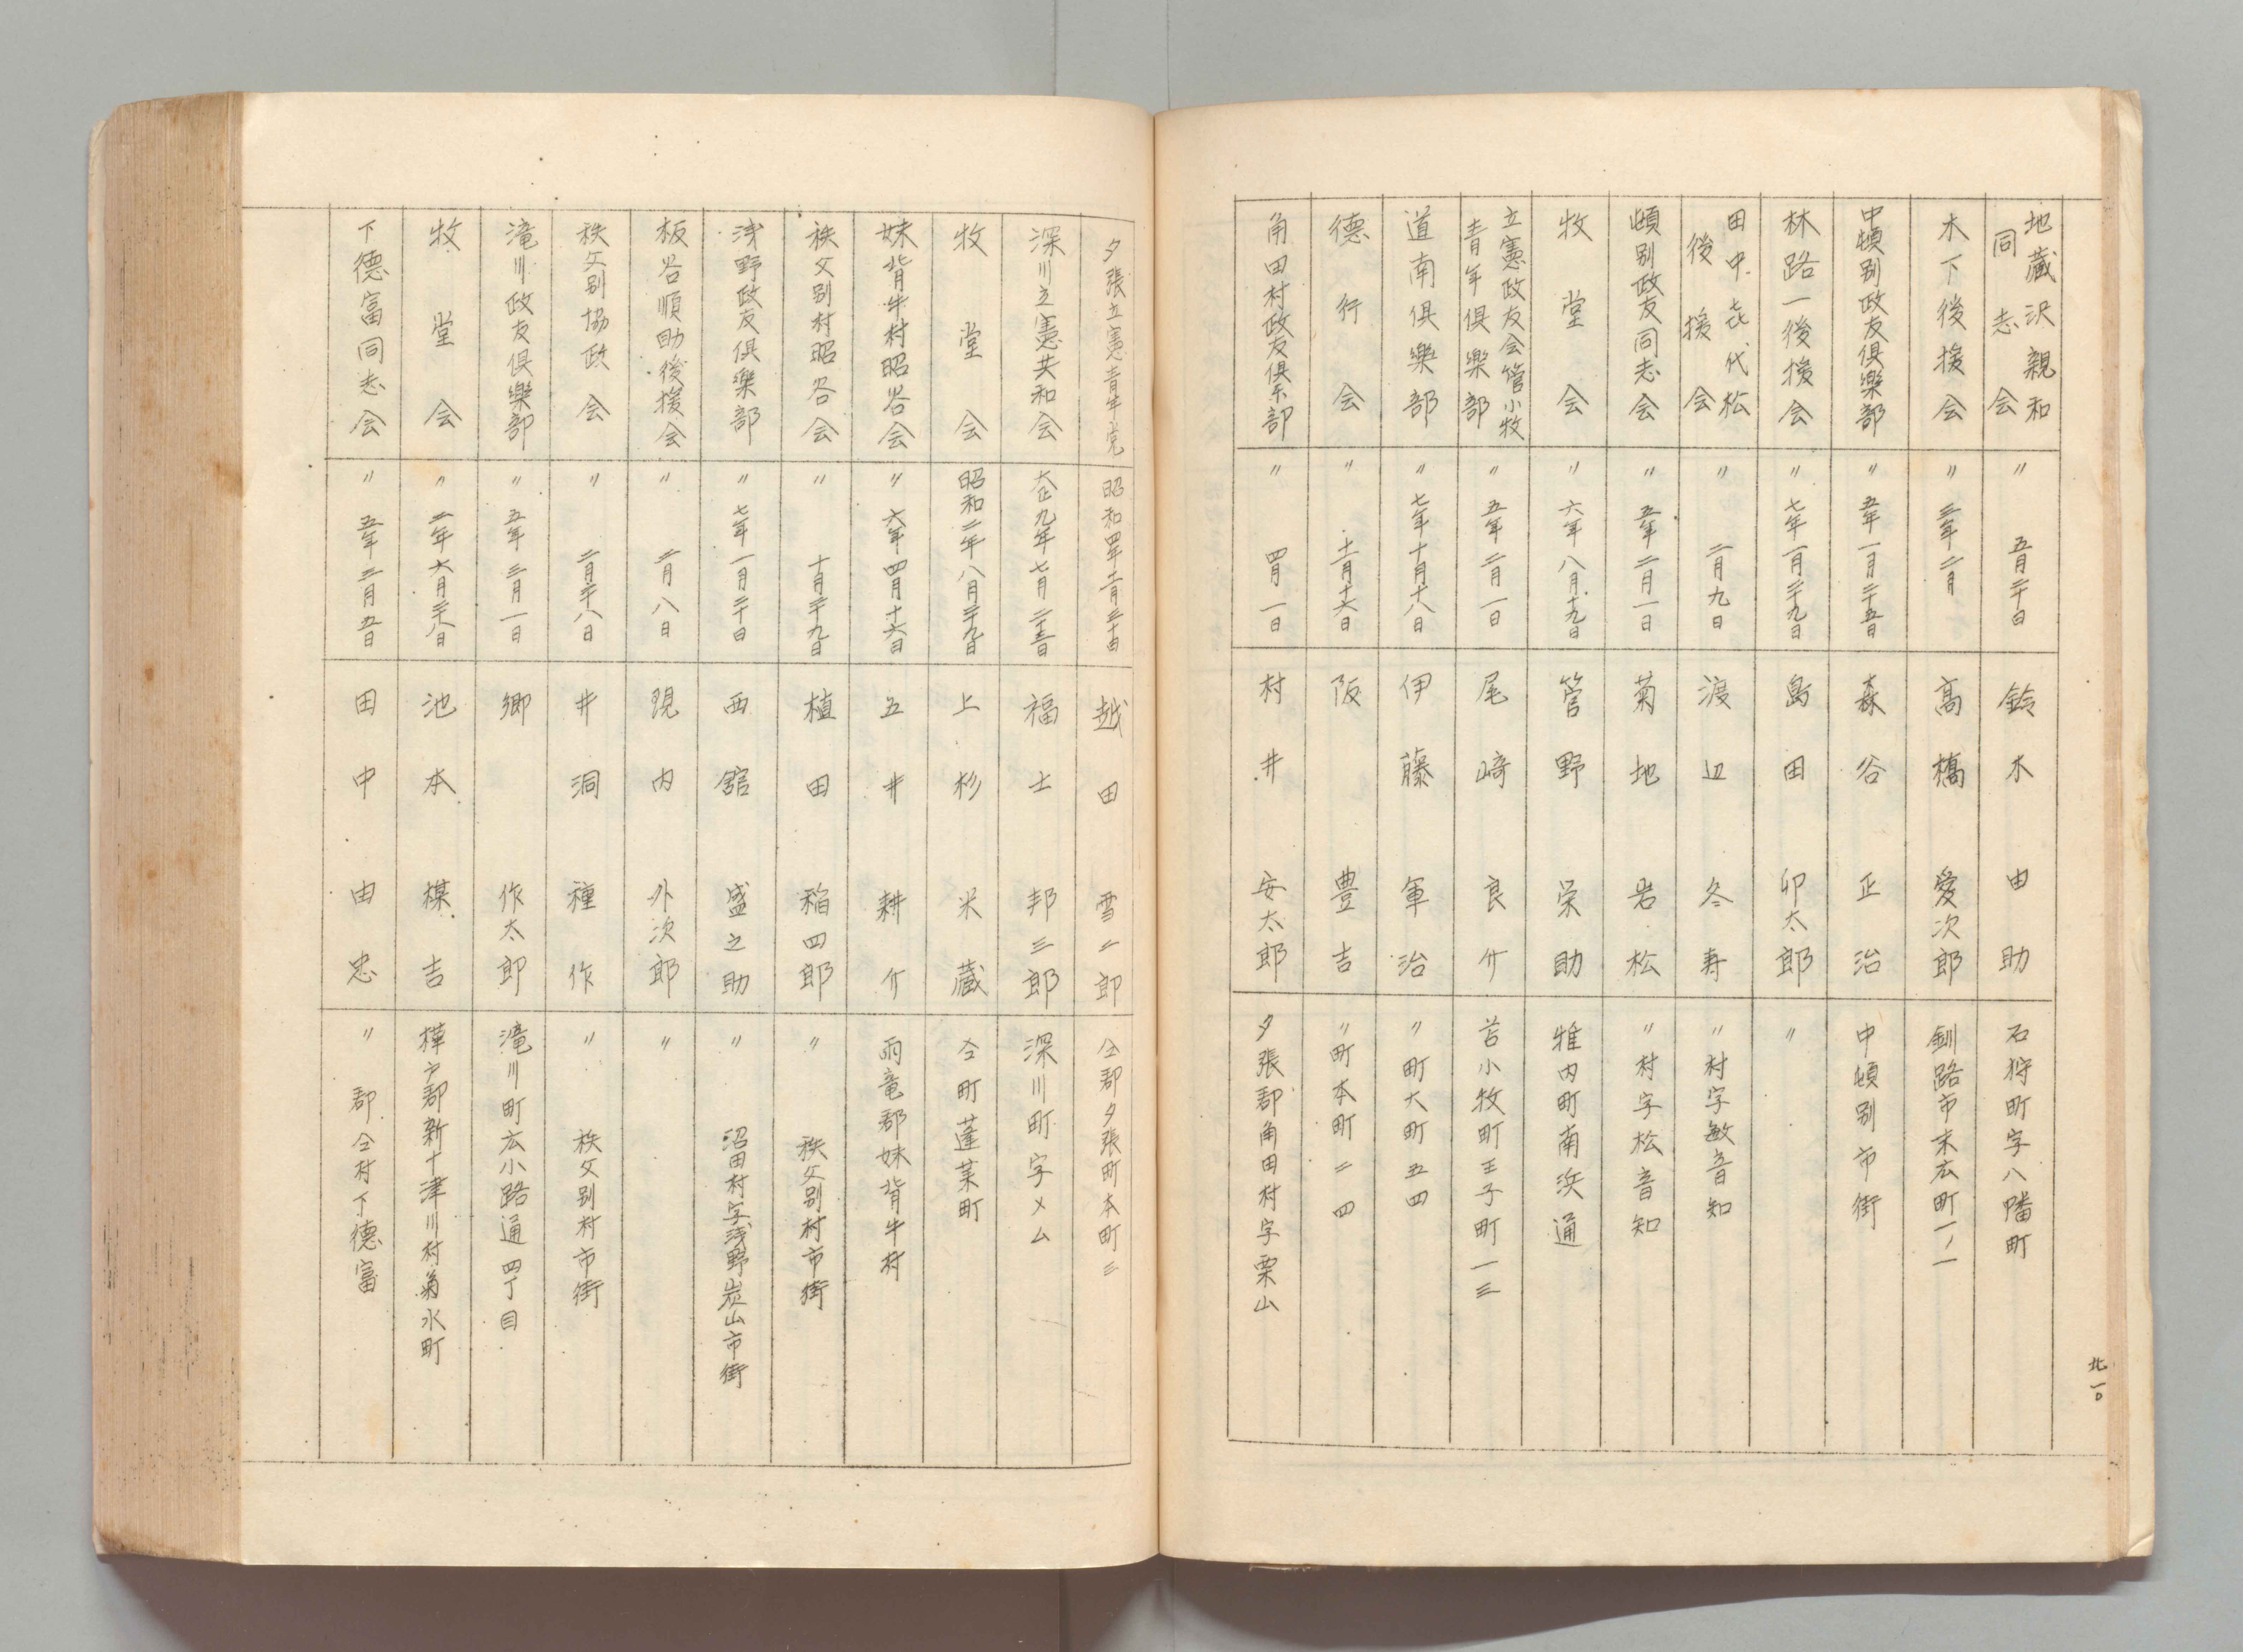 北一〇
地蔵沢親和同志会 〃 五月二十日 鈴木由助 石狩町字八幡町
木下後援会 〃 三年二月 高橋愛次郎 釧路市末広町一ノ一
中頓別政友倶楽部 〃 五年一月二十五日 森谷正治 中頓別市街
林路一後援会 〃 七年一月二十九日 島田卯太郎 〃
田中喜代松後援会 〃 二月九日 渡辺冬寿 〃村字敏音知
頓別政友同志会 〃 五年二月一日 菊地岩松 〃村字松音知
牧堂会 〃 六年八月十九日 管野栄助 稚内町南浜通
立憲政友会管小牧青年倶楽部 〃 五年二月一日 尾崎良介 苫小牧町王子町一三
道南倶楽部 〃 七年十月十八日 伊藤軍治 〃町大町五四
德行会 〃 十一月十六日 阪豊吉 〃町本町二四
角田村政友倶楽部 〃 四月一日 村井安太郎 夕張郡角田村字栗山
夕張立憲青年党 昭和四年二月三十日 越田雪二郎 仝郡夕張町本町三
深川立憲共和会 大正九年七月二十三日 福士邦三郎 深川町字メム
牧堂会 昭和二年八月二十九日 上杉米蔵 仝町蓬莱町
妹背牛村昭谷会 〃 六年四月十六日 五井耕介 雨竜郡妹背牛村
秩父別村昭谷会 〃 十月二十九日 植田稲四郎 〃 秩父別村市街
浅野政友倶楽部 〃 七年一月二十日 西舘盛之助 〃 沼田村字浅野炭山市街
板谷順助後援会 〃 二月八日 現内外次郎 〃
秩父別協政会 〃 二月二十八日 井洞種作 〃 秩父別村市街
滝川政友倶楽部 〃 五年三月一日 郷作太郎 滝川町広小路通四丁目
牧堂会 〃 二年六月二十八日 池本楳吉 樺戸郡新十津川村菊水町
下德富同志会 〃 五年三月五日 田中由忠 〃郡仝村下德富